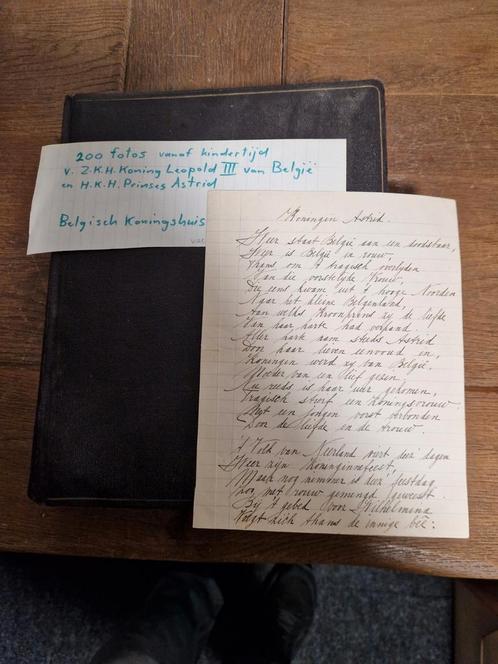 200 fotos vanaf kindertijd
v. Z.K.H. Koning Leopold III van België
en H.K.H. Prinses Astrid
Belgisch Koningshuis
Koningin Astrid.
Weer staat België aan een doodsbaar,
Weer is België in rouw,
om 't tragisch overlijden
Van die vorstelijke Vrouw,
Die eens kwam uit 't hooge Noorden
Naar het kleine Belgenland,
Aan welks Kroonprins zij de liefde
Van haar harte had verpand.
Aller hart nam steeds Astrid
Door haar lieven eenvoud in,
Koningin werd zij van België,
Moeder van een lief gezin.
Nu reeds is haar uur gekomen,
Tragisch stierf een Koningsvrouw
Met een jongen vorst verbonden
Door de liefde en de trouw.
't Volk van Neerland viert deez' dagen
Weer zijn Koninginnefeest,
Maar nog nimmer is deez' feestdag
Zoo met rouw gemengd geweest.
Bij 't gebed voor Wilhelmina
Voegt zich thans de innige bêe: